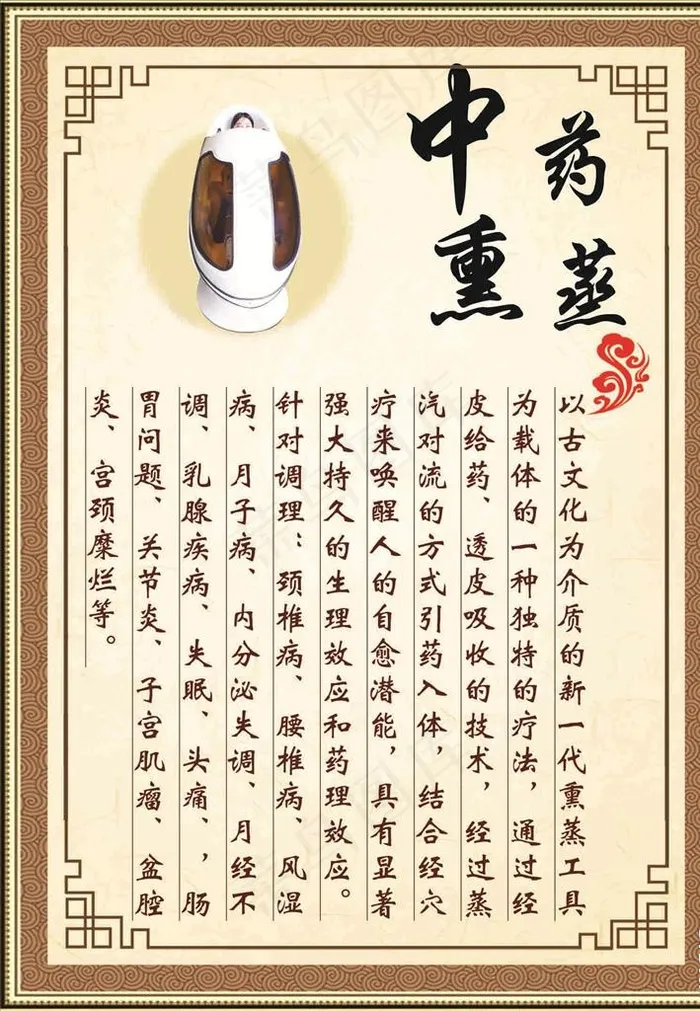 中药
熏蒸
以古文化为介质的新一代熏蒸工具
为载体的一种独特的疗法，通过经
皮给药、透皮吸收的技术，经过蒸
汽对流的方式引药入体，结合经穴
疗来唤醒人的自愈潜能，具有显著
强大持久的生理效应和药理效应。
针对调理：颈椎病、腰椎病、风湿
病、月子病、内分泌失调、月经不
调、乳腺疾病、失眠、头痛、，肠
胃问题、关节炎、子宫肌瘤、盆腔
炎、宫颈糜烂等。